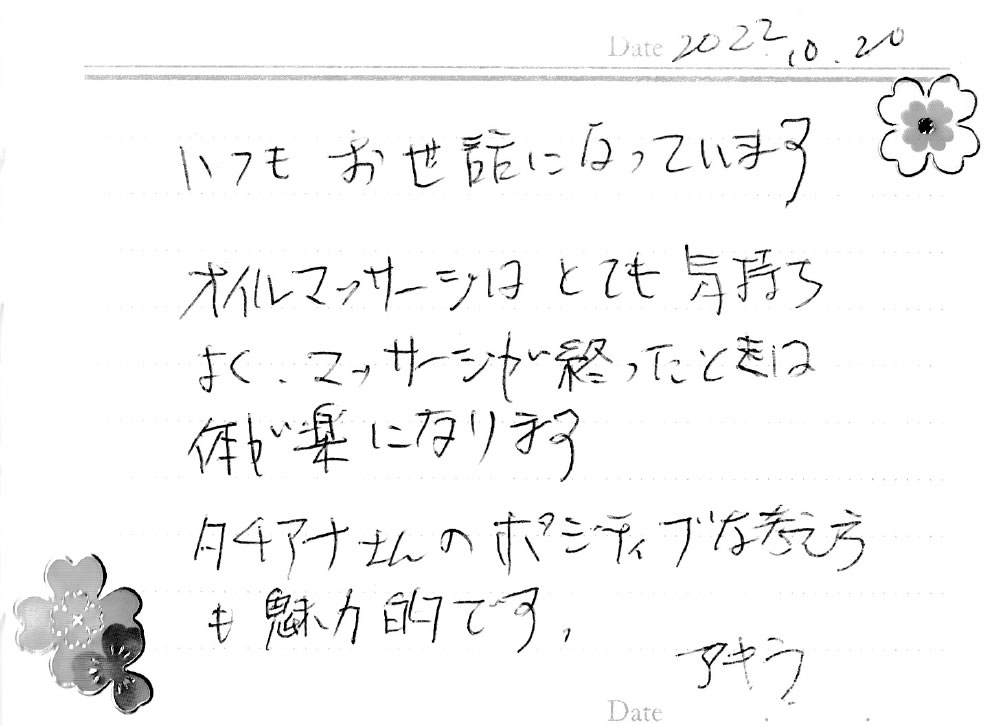 Date 2022.10.20
いつも お世話になっています
オイルマッサージは とても 気持ち
よく、マッサージが終ったときは
体が楽になります
タチアナさんの ポジティブな考え方
も 魅力的です。
アキラ
Date . .